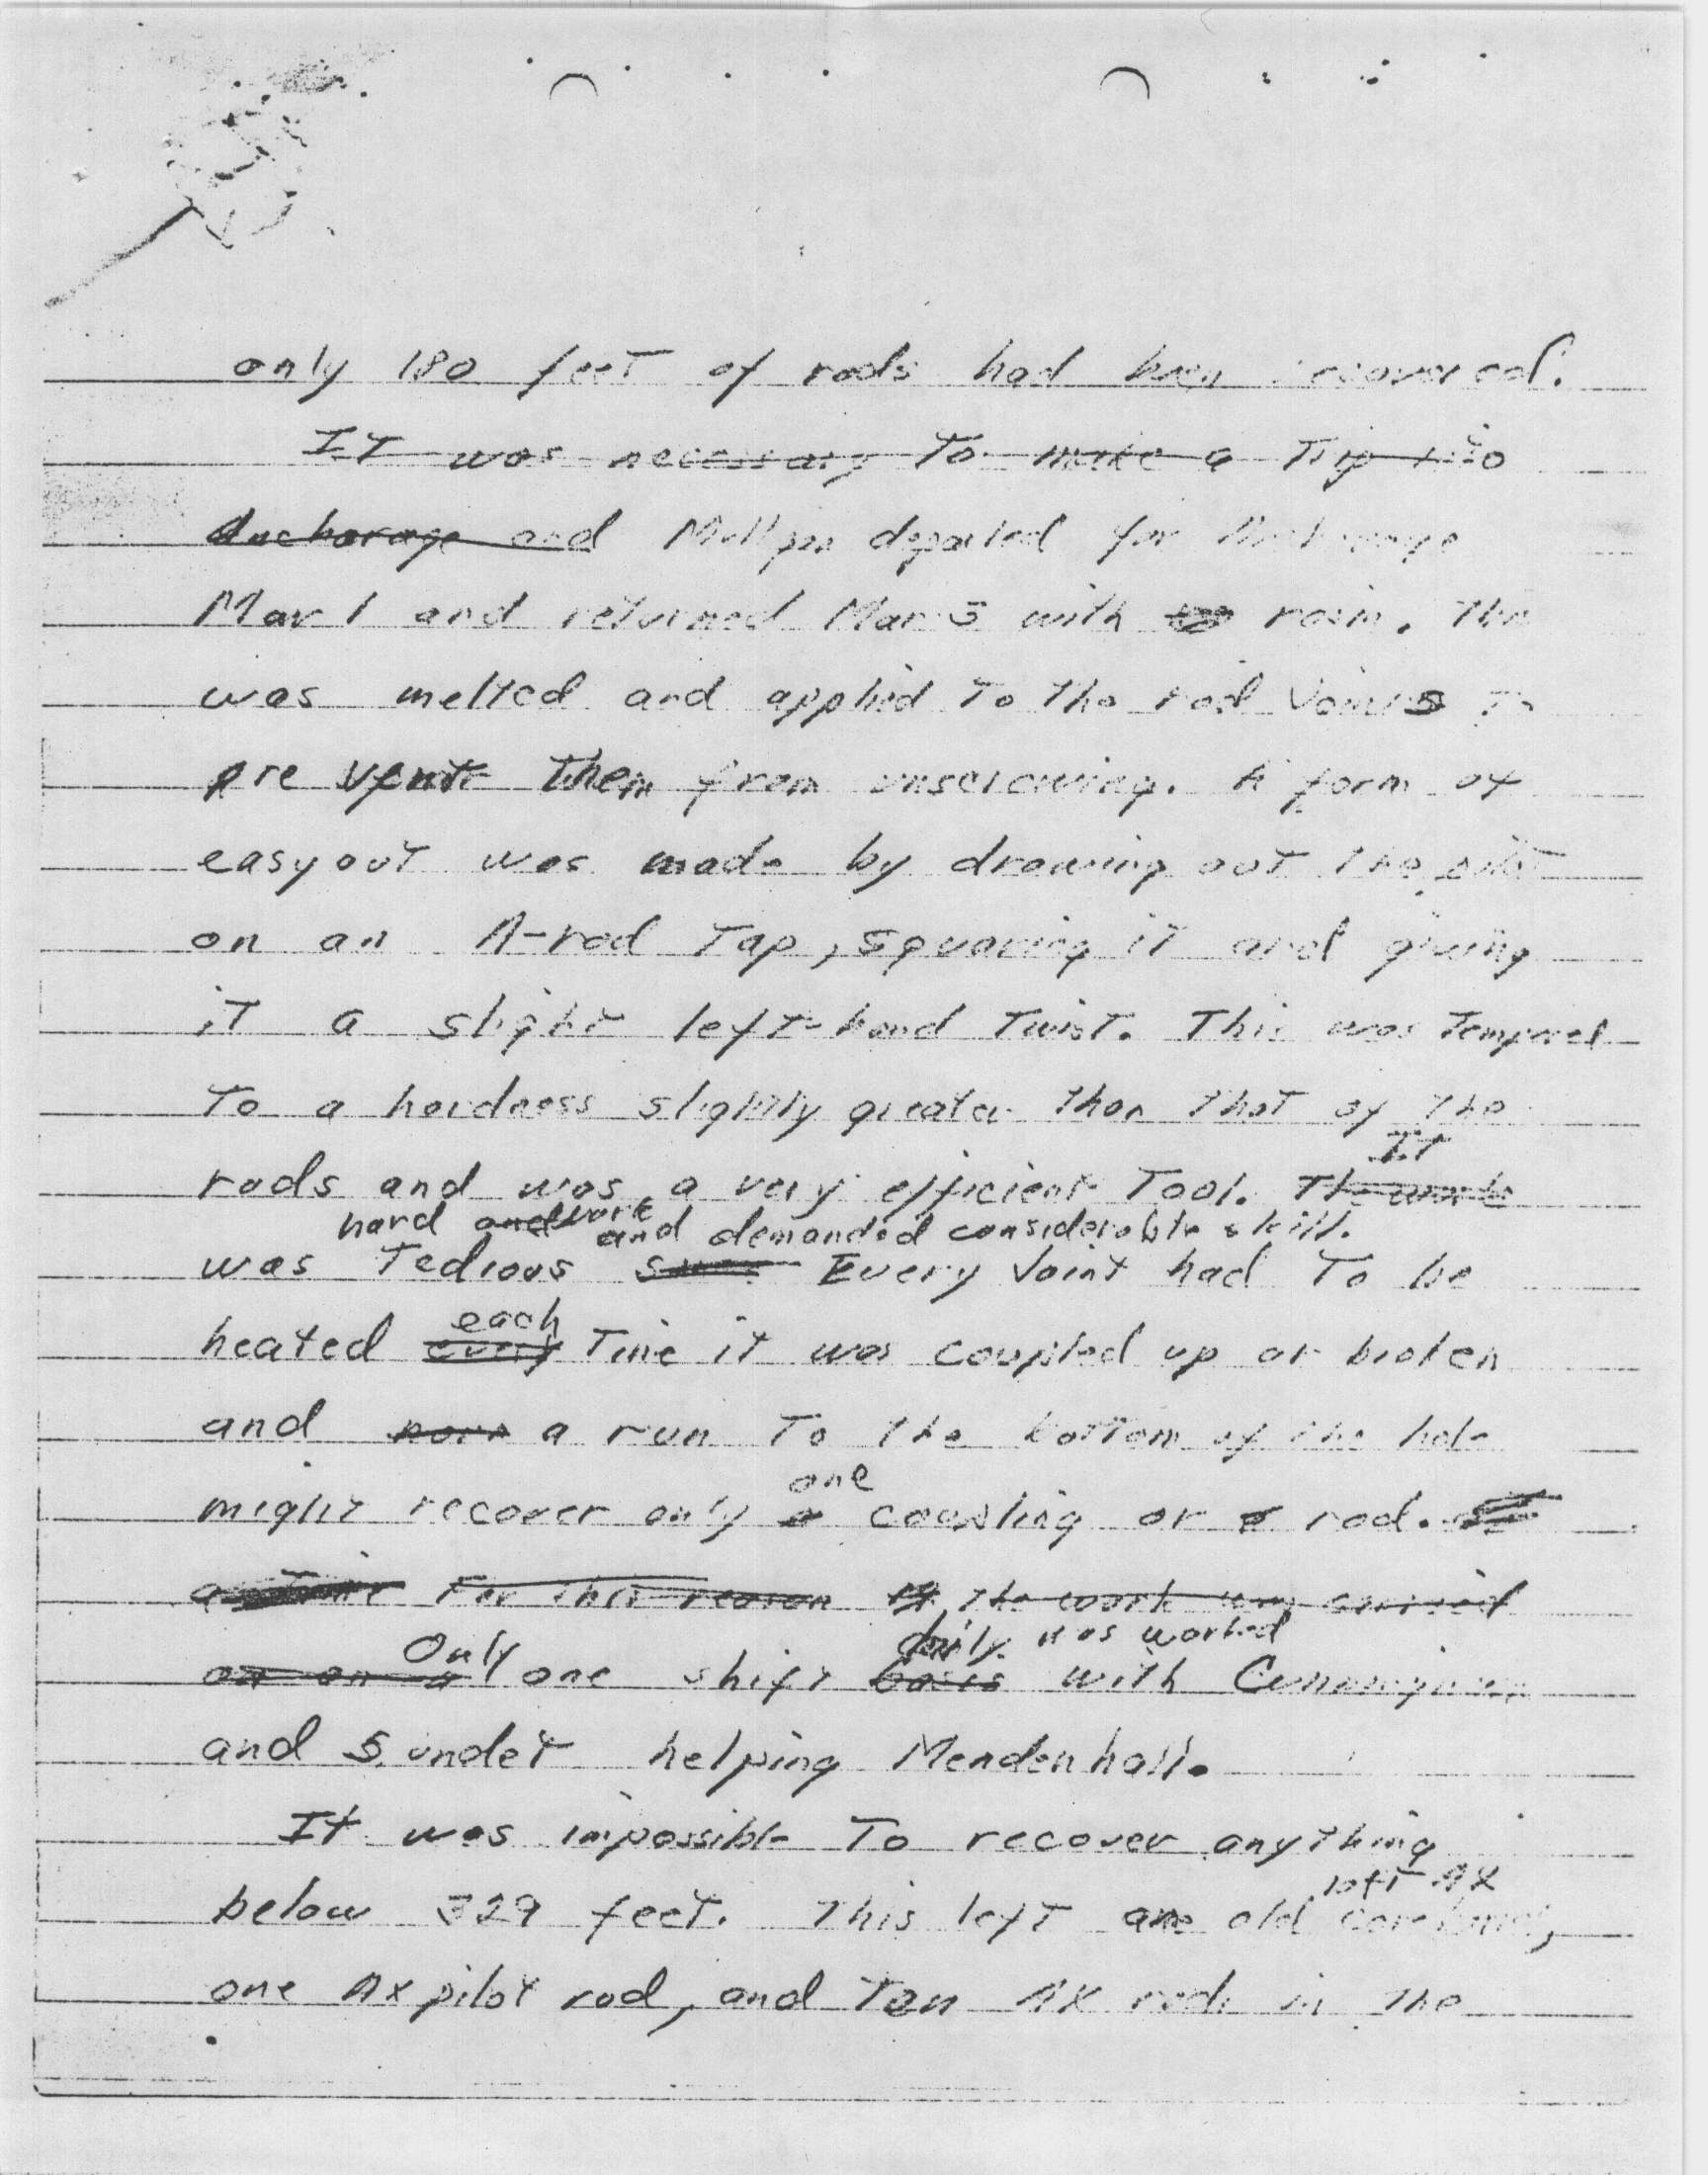 only 180 feet of rods had been recovered.
It was necessary to make a Trip to
Anchorage and Mullen departed for Anchorage
Mar 1 and returned Mar 5 with rosin. This
was melted and applied To The rod Joints To
prevent Them from unscrewing. A form of
easyout was made by drawing out The pilot
on an A-rod Tap, squaring iT and giving
iT a slight left-hand Twist. This was Tempered
To a hardness slightly greater Than That of The
It
rods and was a very efficient Tool. The work
hard and work and demanded considerable skill.
was Tedious Every Joint had To be
each
heated every Time it was coupled up or broken
and a run To The bottom of The hole
one
might recover only a coupling or a rod.
For This reason The work was carried
Only daily was worked
on on a one shift basis with
and Sundet helping Mendenhall.
It was impossible To recover anything
AX
below 329 feet. This left one old core barrel,
one AX pilot rod, and Ten AX rods in The